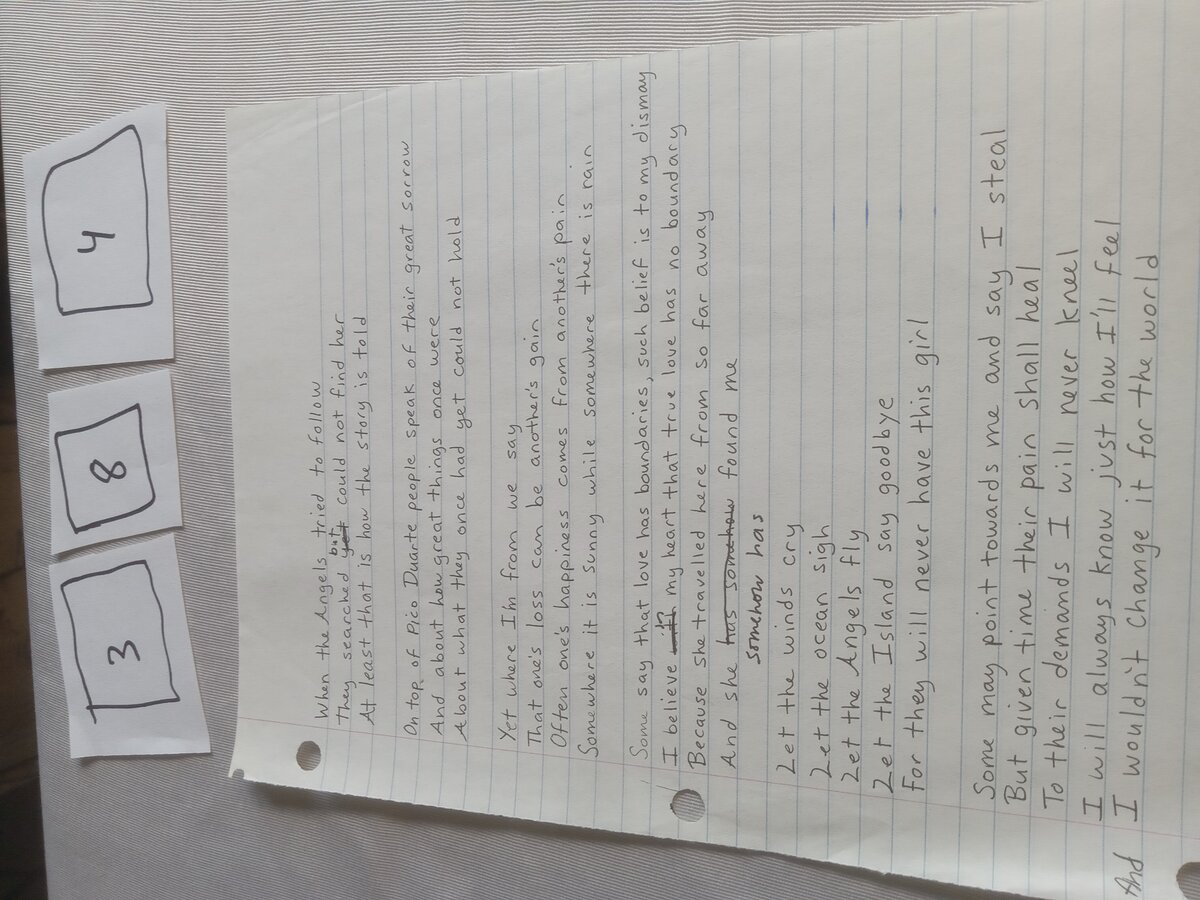 3 8 4
When the Angels tried to follow
They searched yet but could not find her
At least that is how the story is told
On top of Pico Duarte people speak of their great sorrow
And about how great things once were
About what they once had yet could not hold
Yet where I'm from we say
That one's loss can be another's gain
Often one's happiness comes from another's pain
Somewhere it is sunny while somewhere there is rain
Some say that love has boundaries, such belief is to my dismay
I believe in my heart that true love has no boundary
Because she travelled here from so far away
And she has somehow found me
somehow has
Let the winds cry
Let the ocean sigh
Let the Angels fly
Let the Island say goodbye
For they will never have this girl
Some may point towards me and say I steal
But given time their pain shall heal
To their demands I will never kneel
I will always know just how I'll feel
And I wouldn't change it for the world